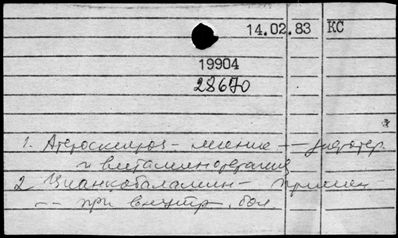 14.02.83 КС
19904
28670
1. Атеросклероз - лечение -- диетотер.
и витаминотерапия
2 Цианкобаламин - примен
-- при внутр. бол.